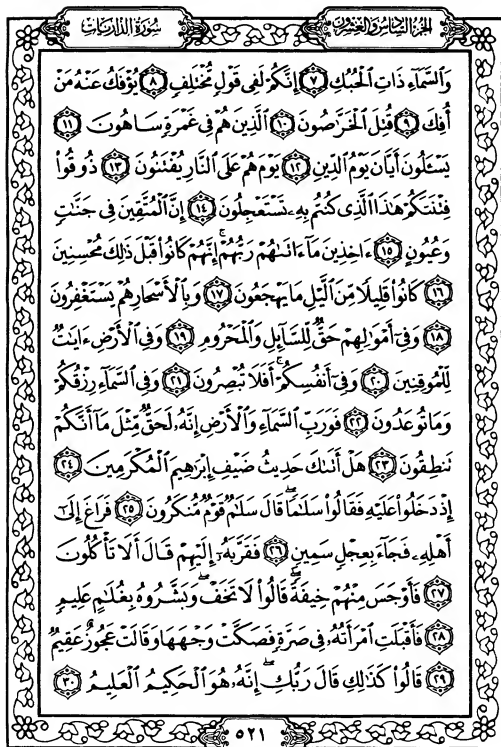 الجزء السادس والعشرون سورة الذاريات
وَالسَّمَآءِ ذَاتِ ٱلْحُبُكِ ٧ إِنَّكُمْ لَفِى قَوْلٍ مُّخْتَلِفٍ ٨ يُؤْفَكُ عَنْهُ مَنْ
أُفِكَ ٩ قُتِلَ ٱلْخَرَّٰصُونَ ١٠ ٱلَّذِينَ هُمْ فِى غَمْرَةٍ سَاهُونَ ١١
يَسْـَٔلُونَ أَيَّانَ يَوْمُ ٱلدِّينِ ١٢ يَوْمَ هُمْ عَلَى ٱلنَّارِ يُفْتَنُونَ ١٣ ذُوقُوا۟
فِتْنَتَكُمْ هَٰذَا ٱلَّذِى كُنتُم بِهِۦ تَسْتَعْجِلُونَ ١٤ إِنَّ ٱلْمُتَّقِينَ فِى جَنَّٰتٍ
وَعُيُونٍ ١٥ ءَاخِذِينَ مَآ ءَاتَىٰهُمْ رَبُّهُمْ ۚ إِنَّهُمْ كَانُوا۟ قَبْلَ ذَٰلِكَ مُحْسِنِينَ
١٦ كَانُوا۟ قَلِيلًا مِّنَ ٱلَّيْلِ مَا يَهْجَعُونَ ١٧ وَبِٱلْأَسْحَارِ هُمْ يَسْتَغْفِرُونَ
١٨ وَفِىٓ أَمْوَٰلِهِمْ حَقٌّ لِّلسَّآئِلِ وَٱلْمَحْرُومِ ١٩ وَفِى ٱلْأَرْضِ ءَايَٰتٌ
لِّلْمُوقِنِينَ ٢٠ وَفِىٓ أَنفُسِكُمْ ۚ أَفَلَا تُبْصِرُونَ ٢١ وَفِى ٱلسَّمَآءِ رِزْقُكُمْ
وَمَا تُوعَدُونَ ٢٢ فَوَرَبِّ ٱلسَّمَآءِ وَٱلْأَرْضِ إِنَّهُۥ لَحَقٌّ مِّثْلَ مَآ أَنَّكُمْ
تَنطِقُونَ ٢٣ هَلْ أَتَىٰكَ حَدِيثُ ضَيْفِ إِبْرَٰهِيمَ ٱلْمُكْرَمِينَ ٢٤
إِذْ دَخَلُوا۟ عَلَيْهِ فَقَالُوا۟ سَلَٰمًا ۖ قَالَ سَلَٰمٌ قَوْمٌ مُّنكَرُونَ ٢٥ فَرَاغَ إِلَىٰٓ
أَهْلِهِۦ فَجَآءَ بِعِجْلٍ سَمِينٍ ٢٦ فَقَرَّبَهُۥٓ إِلَيْهِمْ قَالَ أَلَا تَأْكُلُونَ
٢٧ فَأَوْجَسَ مِنْهُمْ خِيفَةً ۖ قَالُوا۟ لَا تَخَفْ ۖ وَبَشَّرُوهُ بِغُلَٰمٍ عَلِيمٍ
٢٨ فَأَقْبَلَتِ ٱمْرَأَتُهُۥ فِى صَرَّةٍ فَصَكَّتْ وَجْهَهَا وَقَالَتْ عَجُوزٌ عَقِيمٌ
٢٩ قَالُوا۟ كَذَٰلِكِ قَالَ رَبُّكِ ۖ إِنَّهُۥ هُوَ ٱلْحَكِيمُ ٱلْعَلِيمُ ٣٠
٥٢١